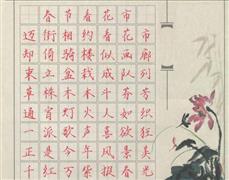 春节看花市
迈街相约看花市
却倚骑楼似画廊
束立盆栽成队列
草株木本斗芬芳
通宵灯火人如织
一派歌声喜欲狂
正是今年风景美
千红万紫报春光